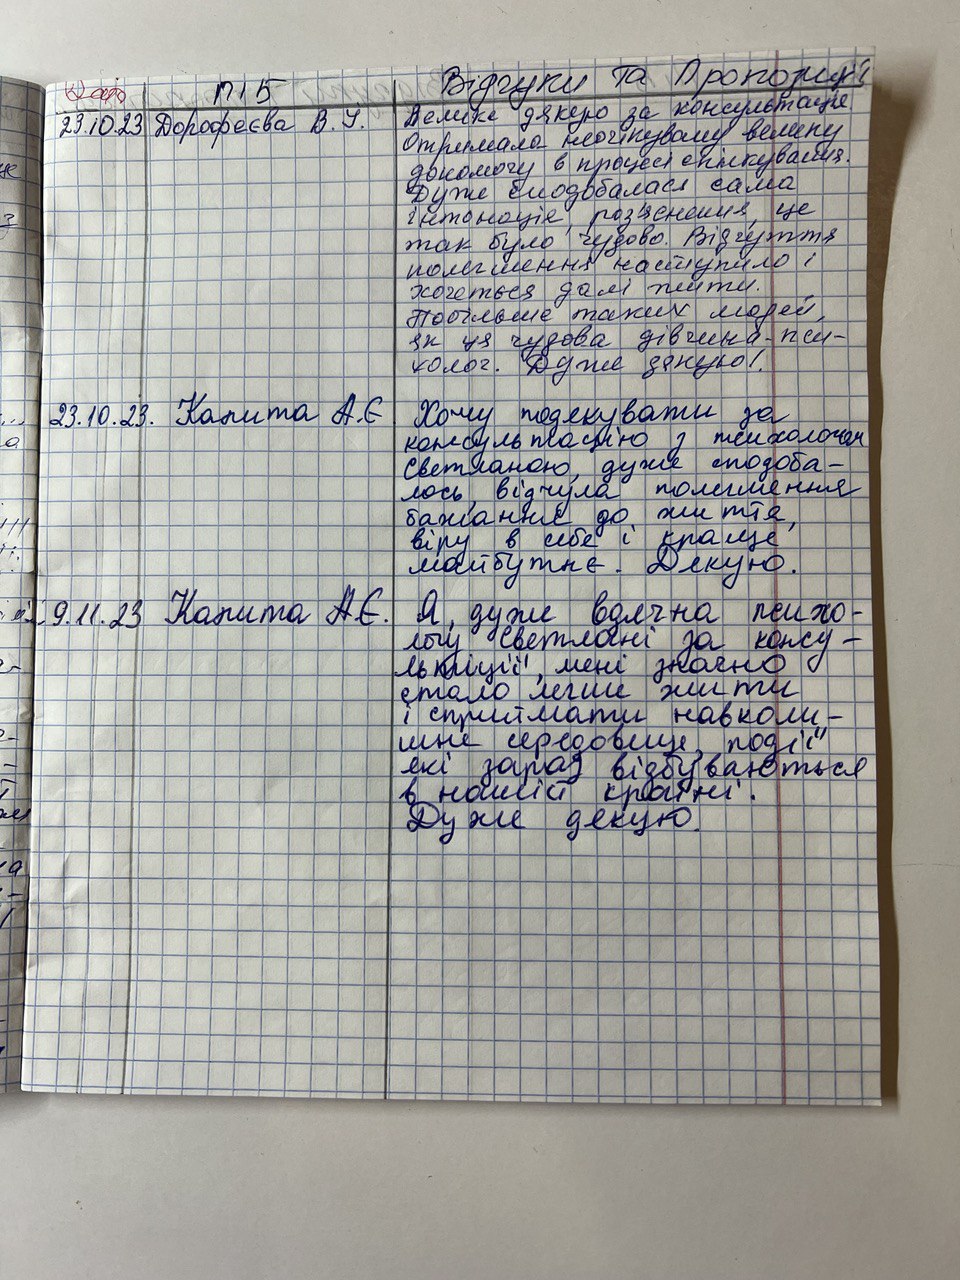 Дата ПІБ Відгуки та Пропозиції
23.10.23 Дорофеєва В. У. Велике дякую за консультацію
Отримала неочікувану велику
допомогу в процесі спілкування.
Дуже сподобалася сама
інтонація, роз'яснення, це
так було чудово. Відчуття
полегшення наступило і
хочеться далі жити.
Побільше таких людей,
як ця чудова дівчина-пси-
холог. Дуже дякую!
23.10.23. Капита А.Є Хочу подякувати за
консультацію з психологом
Светланою, дуже сподоба-
лось, відчула полегшення
бажання до життя,
віру в себе і краще
майбутнє. Дякую.
9.11.23 Капита А.Є. Я дуже вдячна психо-
логу Светлані за консу-
льтації, мені значно
стало легше жити
і сприймати навколи-
шнє середовище, події
які зараз відбуваються
в нашій країні.
Дуже дякую.